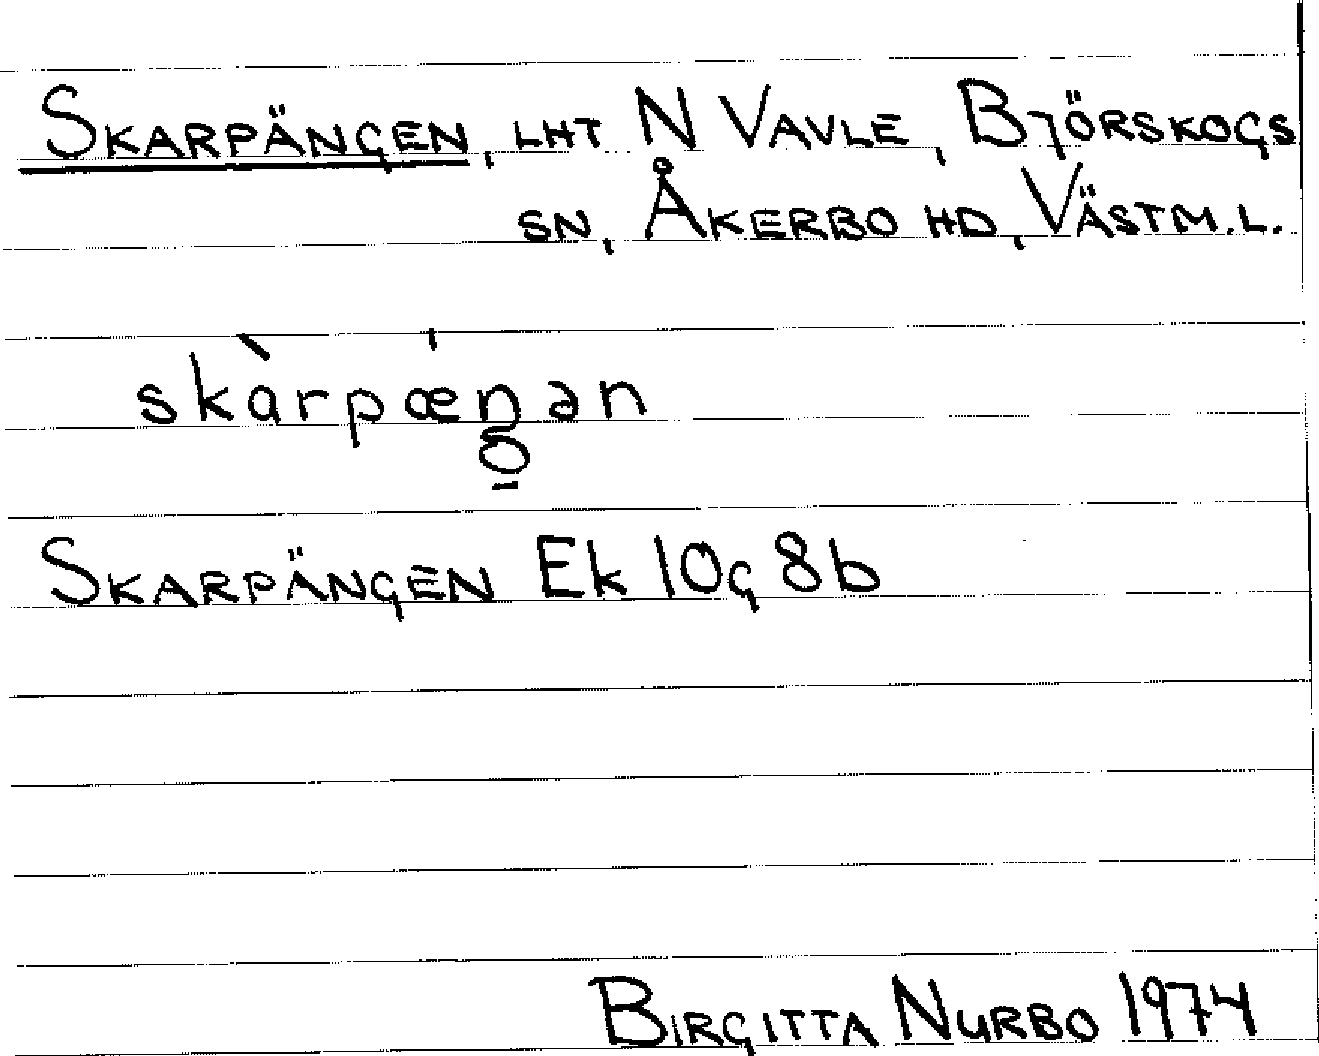 SKARPÄNGEN, LHT N VAVLE, BJÖRSKOGS
SN, ÅKERBO HD, VÄSTM.L.
skàrpæŋan
SKARPÄNGEN Ek 10g 8b
BIRGITTA NURBO 1974